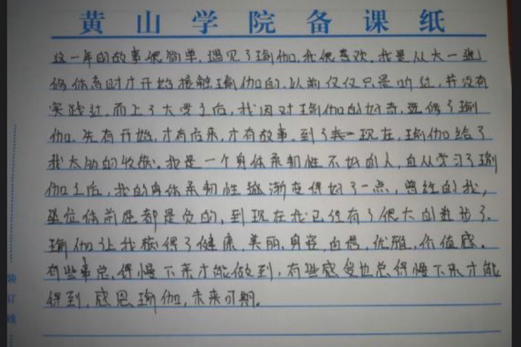 黄山学院备课纸
这一年的故事很简单,遇见了瑜伽,我很喜欢。我是从大一选
修体育时才开始接触瑜伽的,以前仅仅只是听过,并没有
实践过。而上了大学之后,我因对瑜伽的好奇,选修了瑜
伽。先有开始,才有后来,才有故事。到了现在,瑜伽给了
我太多的收获。我是一个身体柔韧性不好的人,自从学习了瑜
伽之后,我的身体柔韧性逐渐变得好了一点,曾经的我,
坐位体前屈都是负的,到现在我已经有了很大的进步了。
瑜伽让我获得了健康、美丽、身姿、自信、优雅、价值感。
有些事总得慢下来才能做到,有些感受也总得慢下来才能
得到,感恩瑜伽,未来可期。
装订线